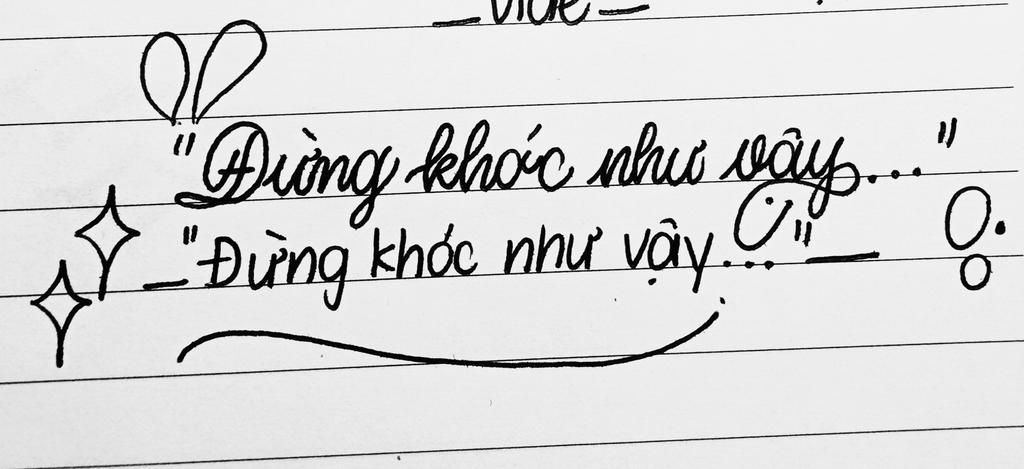 "Đừng khóc như vậy..."
_"Đừng khóc như vậy..."_